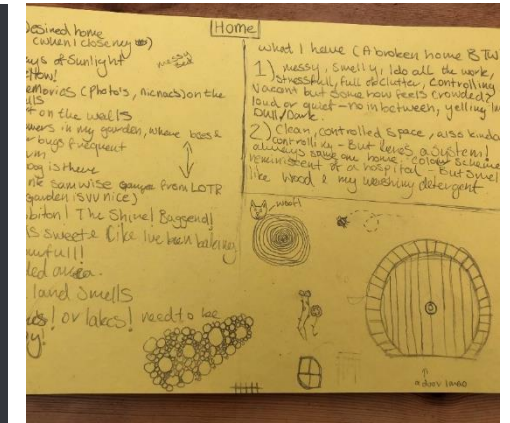 Home
Desired home
(when I close my
messy bed
ays of sunlight
Memories (photos, nicnacs) on the
on the walls
in my garden, where bees &
bugs frequent
og is there
samwise from LOTR
garden is vv nice)
! The Shire! Baggend!
s sweet & like ive been baking
land smells
! or lakes! need to be
what I have (A broken home BTW
1) messy, smelly, I do all the work,
stressfull, full of clutter, controlling
vacant but somehow feels crowded?
loud or quiet - no in between, yelling
Dull/Dark.
2) Clean, controlled space, also kinda
controlling - But has a system!
always one home. colour scheme
reminiscent of a hospital - But smel
like wood & my washing detergent.
woof!
a door